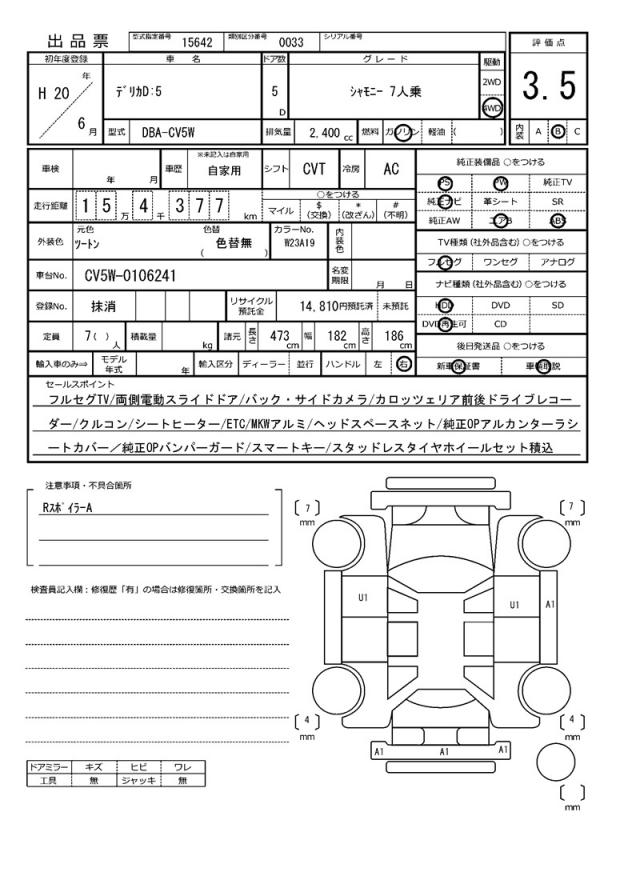 出品票 型式指定番号 15642 類別区分番号 0033 シリアル番号
評価点
3.5
初年度登録 車名 ドア数 グレード 駆動
H 20 年 6 月
デリカD:5 5 D シャモニー 7人乗 2WD 4WD
型式 DBA-CV5W 排気量 2,400 cc 燃料 ガソリン 軽油 ( )
内装 A B C
車検 年 月 車歴 ※未記入は自家用 自家用 シフト CVT 冷房 AC
走行距離 15万4千377 km
○をつける
マイル $(交換) *(改ざん) #(不明)
外装色 元色 ツートン 色替 ( 色替無 ) カラーNo. W23A19 内装色
車台No. CV5W-0106241 名変期限 月 日
登録No. 抹消 リサイクル預託金 14,810円預託済 未預託
定員 7( )人 積載量 kg 諸元 長さ 473 cm 幅 182 cm 高さ 186 cm
輸入車のみ⇒ モデル年式 年 輸入区分 ディーラー 並行 ハンドル 左 右
純正装備品 ○をつける
PS PW 純正TV
純正ナビ 革シート SR
純正AW エアB ABS
TV種類(社外品含む)○をつける
フルセグ ワンセグ アナログ
ナビ種類(社外品含む)○をつける
HDD DVD SD
DVD再生可 CD
後日発送品 ○をつける
新車保証書 車輌取説
セールスポイント
フルセグTV/両側電動スライドドア/バック・サイドカメラ/カロッツェリア前後ドライブレコー
ダー/クルコン/シートヒーター/ETC/MKWアルミ/ヘッドスペースネット/純正OPアルカンターラシ
ートカバー/純正OPバンパーガード/スマートキー/スタッドレスタイヤホイールセット積込
注意事項・不具合箇所
RスポイラーA
検査員記入欄：修復歴「有」の場合は修復箇所・交換箇所を記入
ドアミラー キズ ヒビ ワレ
工具 無 ジャッキ 無
[ 7 ] mm
[ 7 ] mm
U1 U1 A1
[ 4 ] mm
[ 4 ] mm
A1 A1 A1
[ ] mm